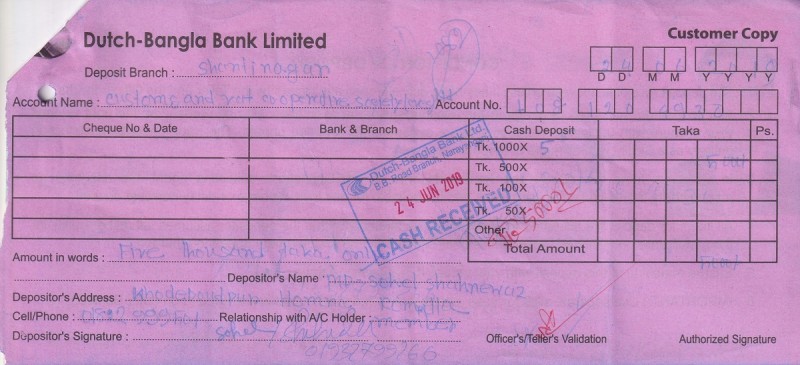 Dutch-Bangla Bank Limited
Customer Copy
Deposit Branch :
24 06
D D M M Y Y Y Y
Account Name : customs and
Account No.
Cheque No & Date Bank & Branch Cash Deposit Taka Ps.
Tk. 1000X 5
Tk. 500X
Tk. 100X
Tk. 50X
Other
Total Amount
Dutch-Bangla Bank Ltd.
B.B. Road Branch, Narayanganj
24 JUN 2019
CASH RECEIVED
Amount in words : Five thousand taka only
Depositor's Name : MD. Sohel Shahnewaz
Depositor's Address : Homna
Cell/Phone : Relationship with A/C Holder : member
Depositor's Signature : Sohel
Officer's/Teller's Validation Authorized Signature